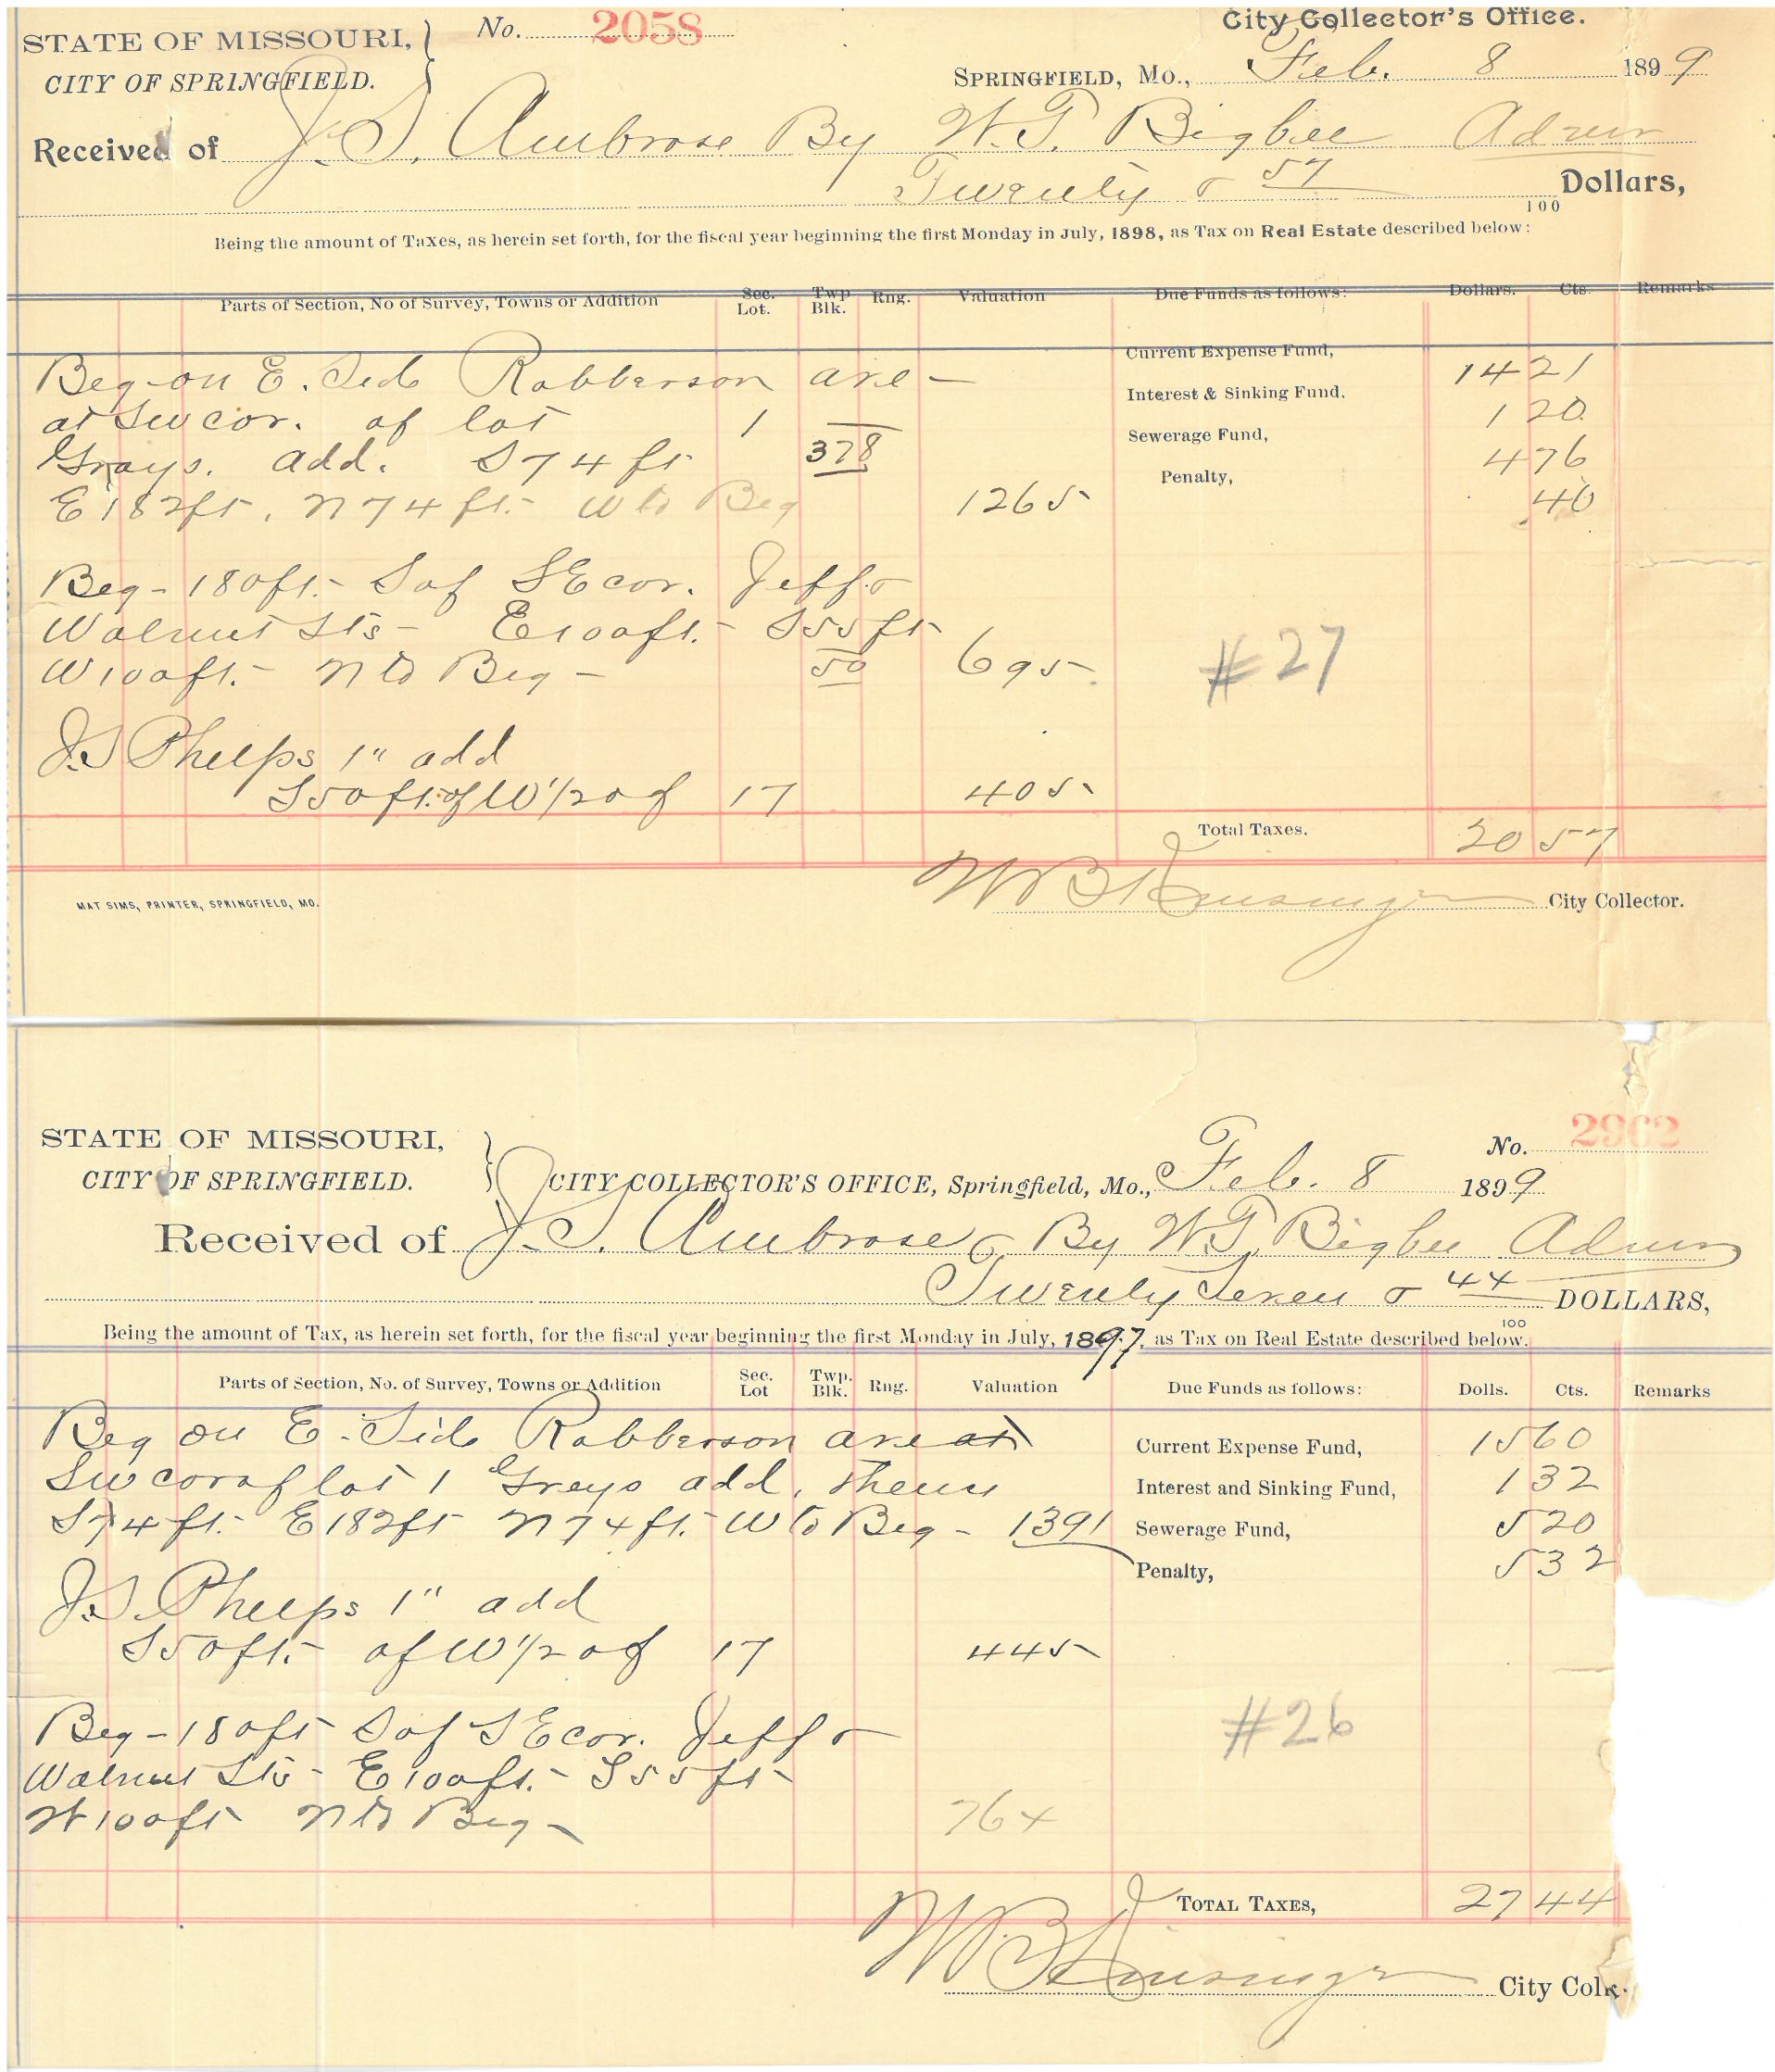 STATE OF MISSOURI,
CITY OF SPRINGFIELD.
No. 2058
City Collector's Office.
SPRINGFIELD, Mo., Feb. 8 1899
Received of J. S. Ambrose By W. T. Bigbee Admr
Twenty & 57/100 Dollars,
Being the amount of Taxes, as herein set forth, for the fiscal year beginning the first Monday in July, 1898, as Tax on Real Estate described below:
Parts of Section, No of Survey, Towns or Addition Sec. Lot. Twp Blk. Rng. Valuation Due Funds as follows: Dollars. Cts. Remarks
Beg on E. Side Robberson ave — Current Expense Fund, 14 21
at SW cor. of lot 1 Interest & Sinking Fund. 1 20
Grays. add. S 74 ft 378 Sewerage Fund, 4 76
E 182 ft, N 74 ft. W to Beg 1265 Penalty, 40
Beg - 180 ft. S of SE cor. Jeff. &
Walnut Sts - E 100 ft. - S 55 ft
W 100 ft. - N to Beg - 50 695
#27
J.S Phelps 1" add
S 50 ft. of W 1/2 of 17 405
Total Taxes. 20 57
MAT SIMS, PRINTER, SPRINGFIELD, MO.
City Collector.
STATE OF MISSOURI,
CITY OF SPRINGFIELD.
No. 2962
CITY COLLECTOR'S OFFICE, Springfield, Mo., Feb. 8 1899
Received of J. S. Ambrose By W. T. Bigbee Admr
Twenty Seven & 44/100 DOLLARS,
Being the amount of Tax, as herein set forth, for the fiscal year beginning the first Monday in July, 1897, as Tax on Real Estate described below.
Parts of Section, No. of Survey, Towns or Addition Sec. Lot Twp. Blk. Rng. Valuation Due Funds as follows: Dolls. Cts. Remarks
Beg on E. Side Robberson ave at Current Expense Fund, 15 60
SW cor of lot 1 Greys add, thence Interest and Sinking Fund, 1 32
S 74 ft. E 182 ft N 74 ft. W to Beg - 1391 Sewerage Fund, 5 20
Penalty, 5 32
J.S. Phelps 1" add
S 50 ft. of W 1/2 of 17 445
#26
Beg - 180 ft S of SE cor. Jeff &
Walnut Sts - E 100 ft. - S 55 ft -
W 100 ft N to Beg - 764
TOTAL TAXES, 27 44
City Colr.